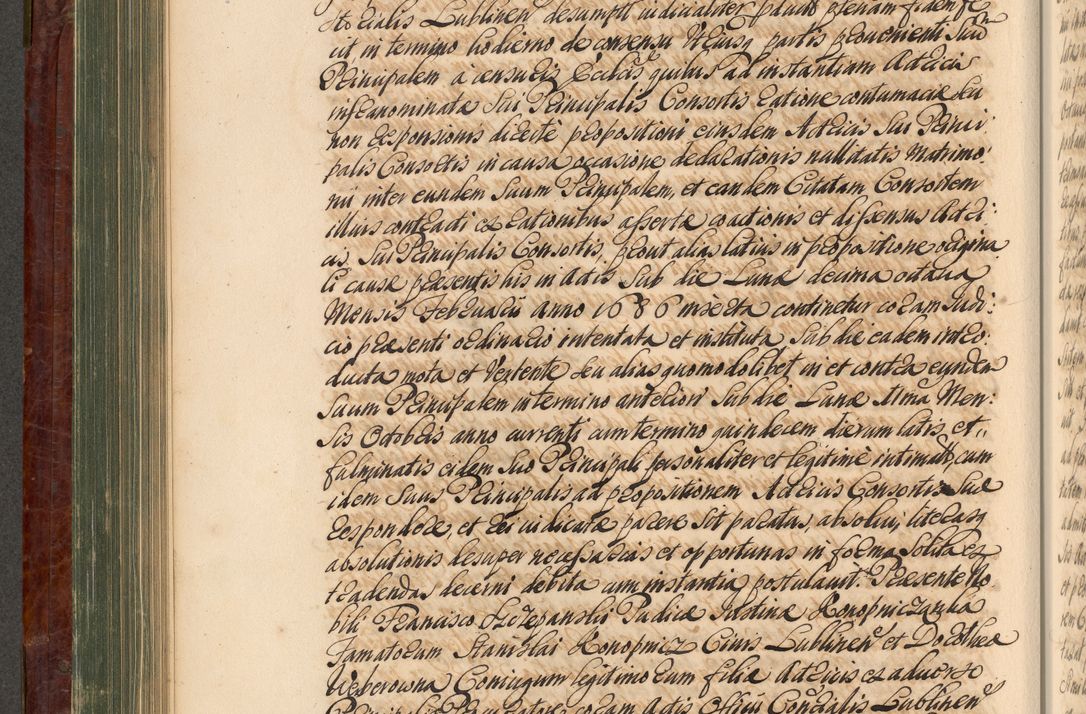 cialis Lublinen desumpti iudicialiter
cit, in termino hodierno de consensu utriusq partis provenienti Suū
Principalem à censuris Ecclcis quibus ad instantiam Actricis
infranominatæ Sui Principalis Consortis ratione contumaciæ seu
non responsionis directè propositioni eiusdem Actricis Sui Princi:
palis Consortis in causa occasione declarationis nullitatis Matrimo:
nii inter eundem Suum Principalem, et eandem Citatam Consortem
illius contracti ex rationibus assertæ coactionis et dissensus Actri:
cis. Sui Principalis Consortis, prout alias latius in propositione origina
li causæ præsentis his in Actis Sub die Lunæ decima octava
Mensis Februarii anno 1686 inserta continetur coram Iudi:
cio præsenti ordinario intentata et instituta Sub die eadem intro:
ducta mota et Vertente seu alias quomodolibet in et contra eundem
Suum Principalem in termino anteriori Sub die Lunæ Men:
sis Octobris anno currenti cum termino quindecem dierum latis, et
fulminatis eidem Suo Principali personaliter et legitimè intimatis, cum
idem Suus Principalis ad propositionem Actricis Consortis Suæ
respondere, et rei iudicatæ parere sit paratus, absolui, literasq
absolutionis desuper necessarias et opportunas in forma Solita ex
tradendas decerni debita cum instantia postulavit. Præsente No
bili Francisco Szczepanski Pudicæ Iustinæ Konopniczanka
Famatorum Stanislai Konopnicz Civis Lublinen et Dorothea
Weberowna Coniugum legitimorum filiæ Actricis ex adverso
Principalis Procuratore coram Actis Officii Consularis Lublinen